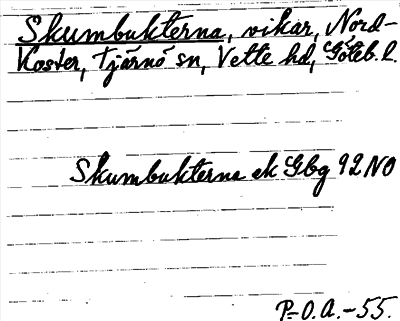 Skumbukterna, vikar, Nord-
Koster, Tjärnö sn, Vette hd, Göteb. l.
Skumbukterna ek Gbg 92 NO
P.-O.A.-55.